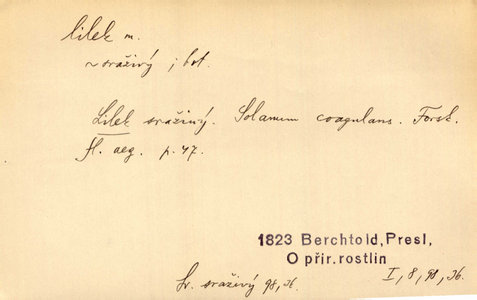 lilek m.
~ sraživý ; bot.
Lilek sražiwý. Solanum coagulans. Forsk.
fl. aeg. p. 47.
1823 Berchtold, Presl,
O přir. rostlin
I, 8, 98, J6.
Sr. sraživý 98, J6.